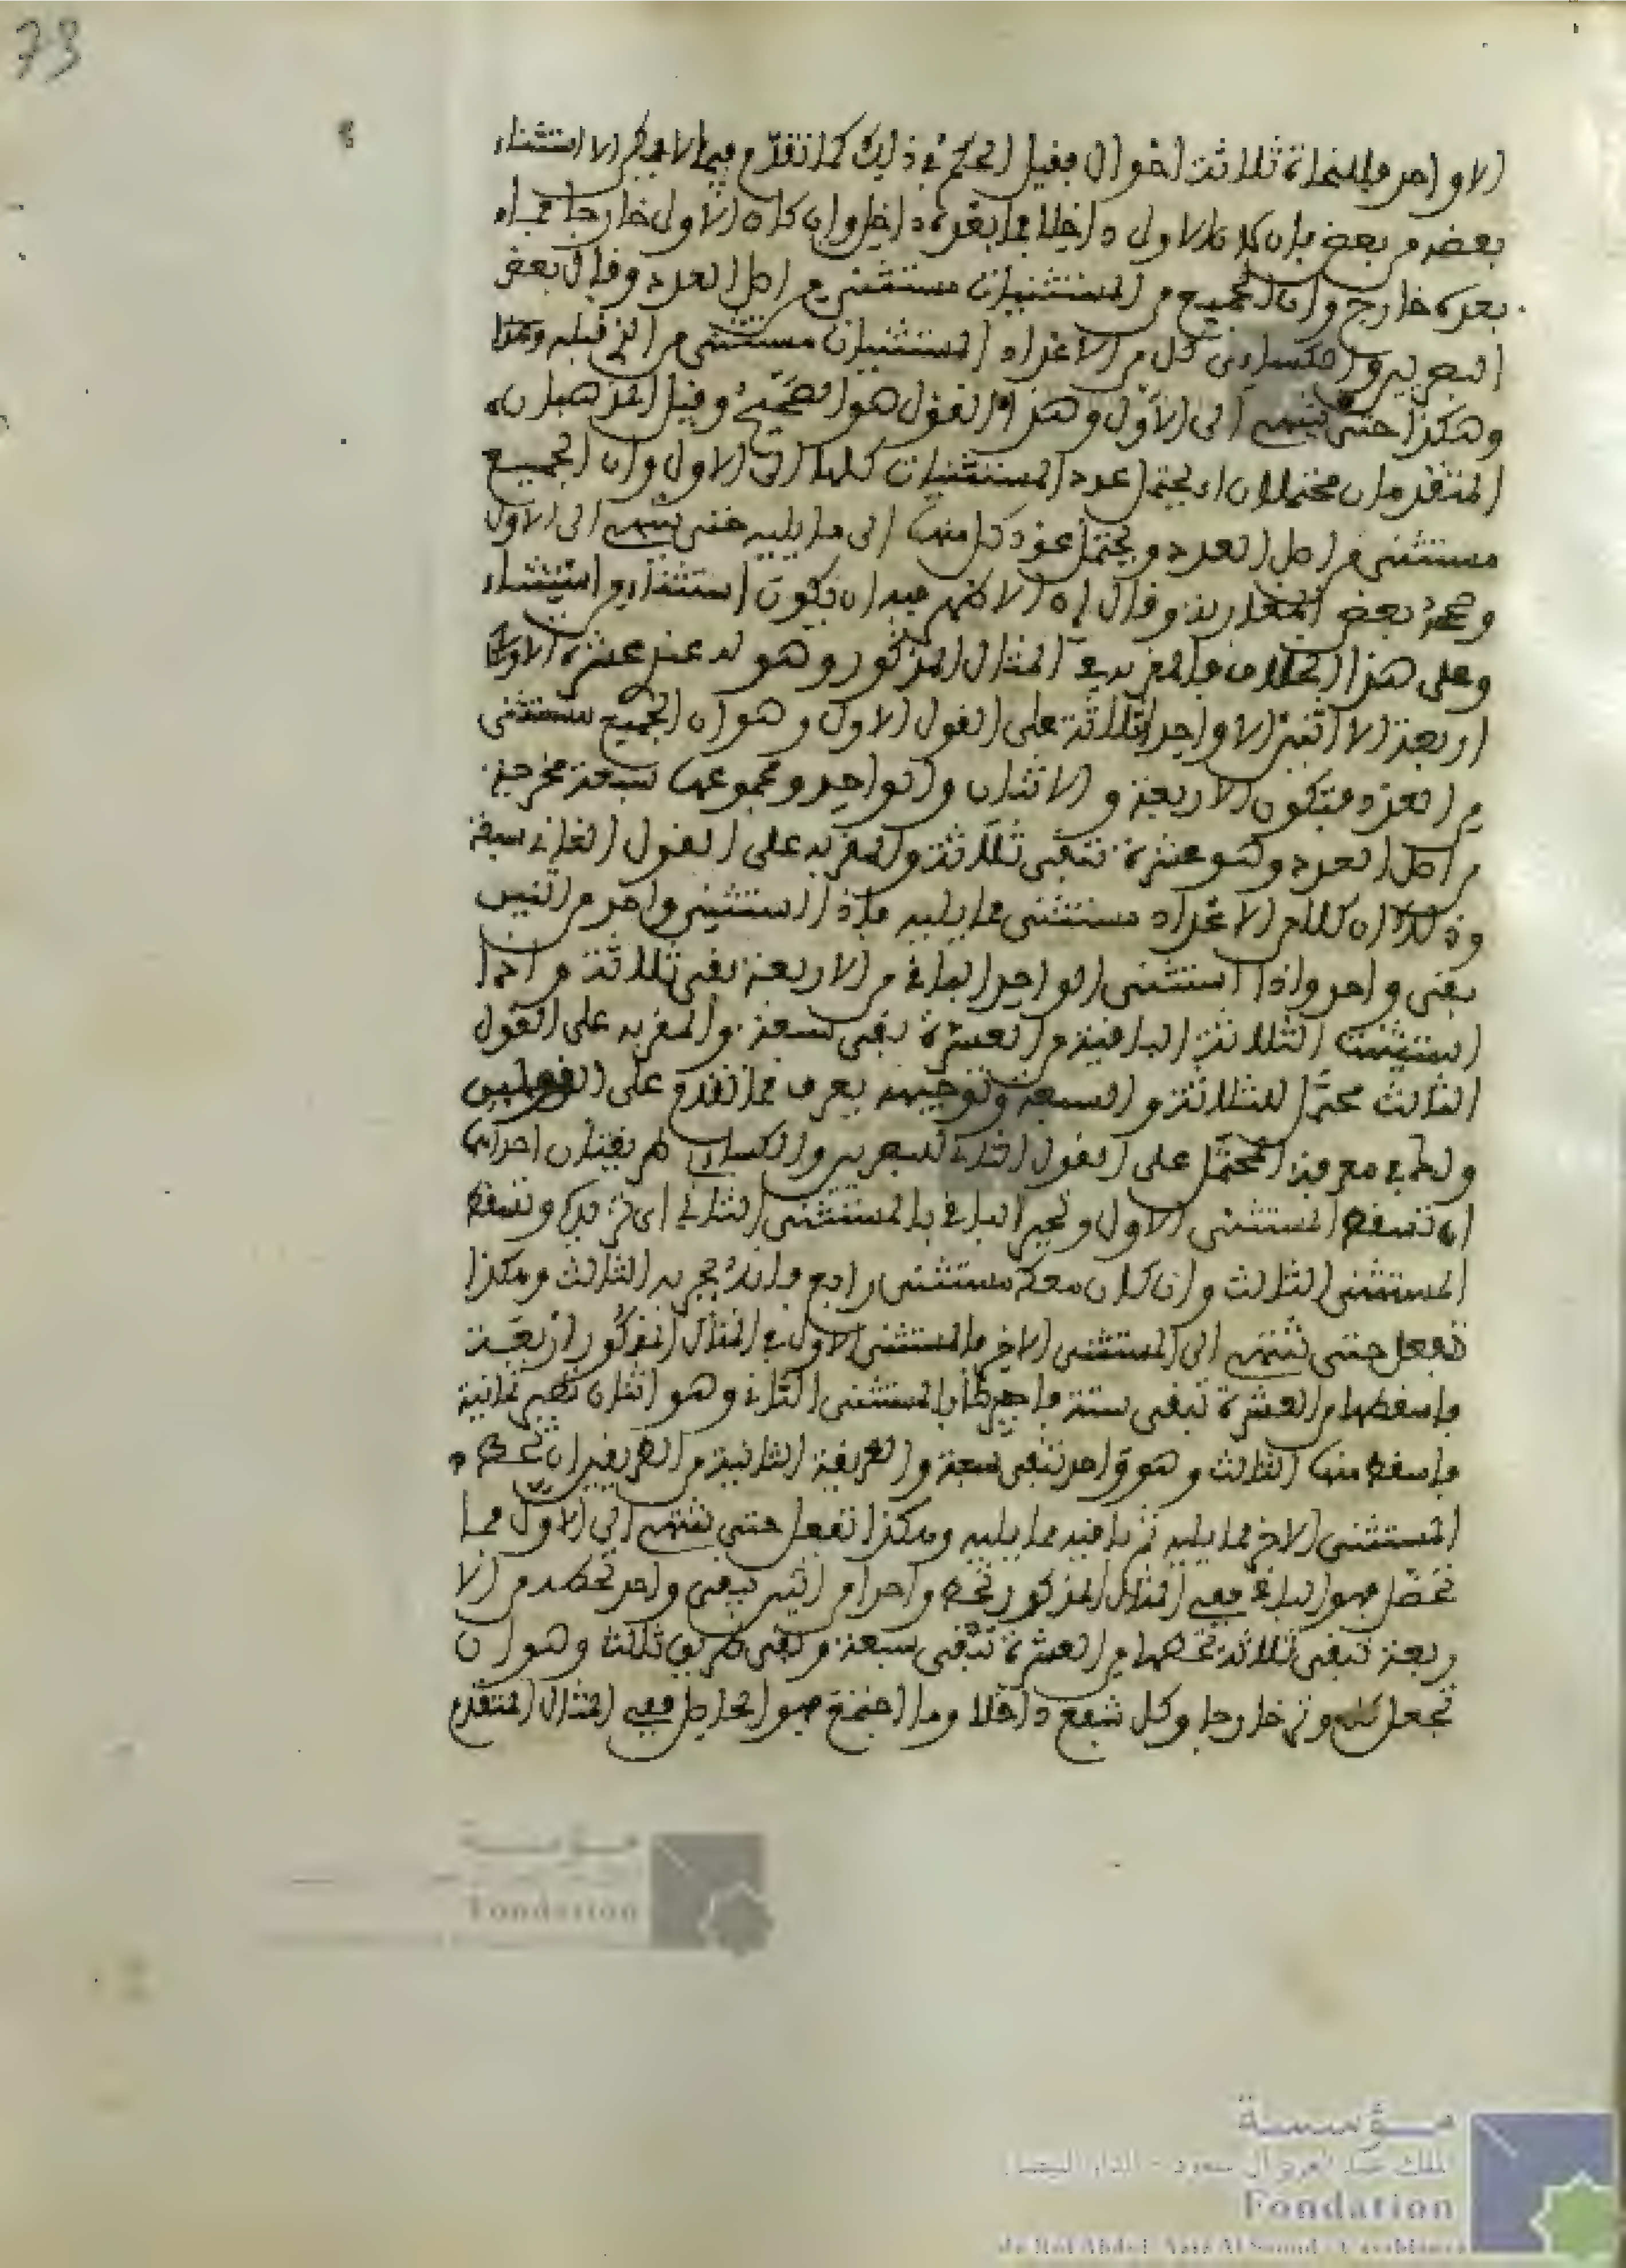 73
الا واحد فللنحاة ثلاثة اقوال فقيل الحكم في ذلك كما تقدم فيما لا يمكن الا استثناء
بعضه من بعض فان كان الاول داخلا فما بعده داخل وان كان الاول خارجا فما
بعده خارج وان الجميع من المستثنيات مستثنى من اصل العدد وقال بعض
البصريين والكسائي كل من الاعداد المستثنيات مستثنى من الذي قبله وهكذا
وهكذا حتى ينتهي الى الاول وهذا القول هو الصحيح وقيل المذهبان
المتقدمان محتملان اي يحتمل عود المستثنيات كلها الى الاول وان الجميع
مستثنى من اصل العدد ويحتمل عود كل منها الى ما يليه حتى ينتهي الى الاول
بعض المغاربة وقال ان الاظهر فيه ان يكون استثناء من استثناء
وعلى هذا الخلاف فالمقر به في المثال المذكور وهو له عندي عشرة الا
اربعة الا اثنين الا واحدا ثلاثة على القول الاول وهو ان الجميع مستثنى
من العدد فتكون الاربعة والاثنان والواحد ومجموعها سبعة مخرجة
من اصل العدد وهو عشرة تبقى ثلاثة والمقر به على القول الثاني سبعة
وذلك ان كلا من الاعداد مستثنى مما يليه فاذا استثني واحد من اثنين
بقي واحد واذا استثنى الواحد الباقي من الاربعة بقي ثلاثة واذا
استثنيت الثلاثة الباقية من العشرة بقي سبعة والمقر به على القول
الثالث محتمل للثلاثة والسبعة وتوجيهه يعرف مما تقدم على القولين
ولك في معرفة المحصل على القول الثاني للبصريين والكسائي طريقتان احداهما
ان تسقط المستثنى الاول وتجبر الباقي بالمستثنى الثاني اي تزيده وتسقط
المستثنى الثالث وان كان معك مستثنى رابع فانك تجبر به الثالث وهكذا
تفعل حتى تنتهي الى المستثنى الاخير فالمستثنى الاول في المثال المذكور اربعة
فاسقطها من العشرة تبقى ستة فاجبرها بالمستثنى الثاني وهو اثنان تصير ثمانية
فاسقط منها الثالث وهو واحد تبقى سبعة والطريقة الثانية من الطريقين ان تحط
المستثنى الاخر مما يليه ثم باقيه مما يليه وهكذا تفعل حتى تنتهي الى الاول فما
تحصل فهو الباقي ففي المثال المذكور تحط واحدا من اثنين يبقى واحد تحطه من الا
ربعة تبقى ثلاثة تحطها من العشرة تبقى سبعة وبقي طريق ثالث وهو ان
تجعل كل وتر خارجا وكل شفع داخلا وما اجتمع فهو الحاصل ففي المثال المتقدم
مؤسسة
Fondation
مؤسسة
الملك عبد العزيز آل سعود - الدار البيضاء
Fondation
du Roi Abdul-Aziz Al Saoud - Casablanca